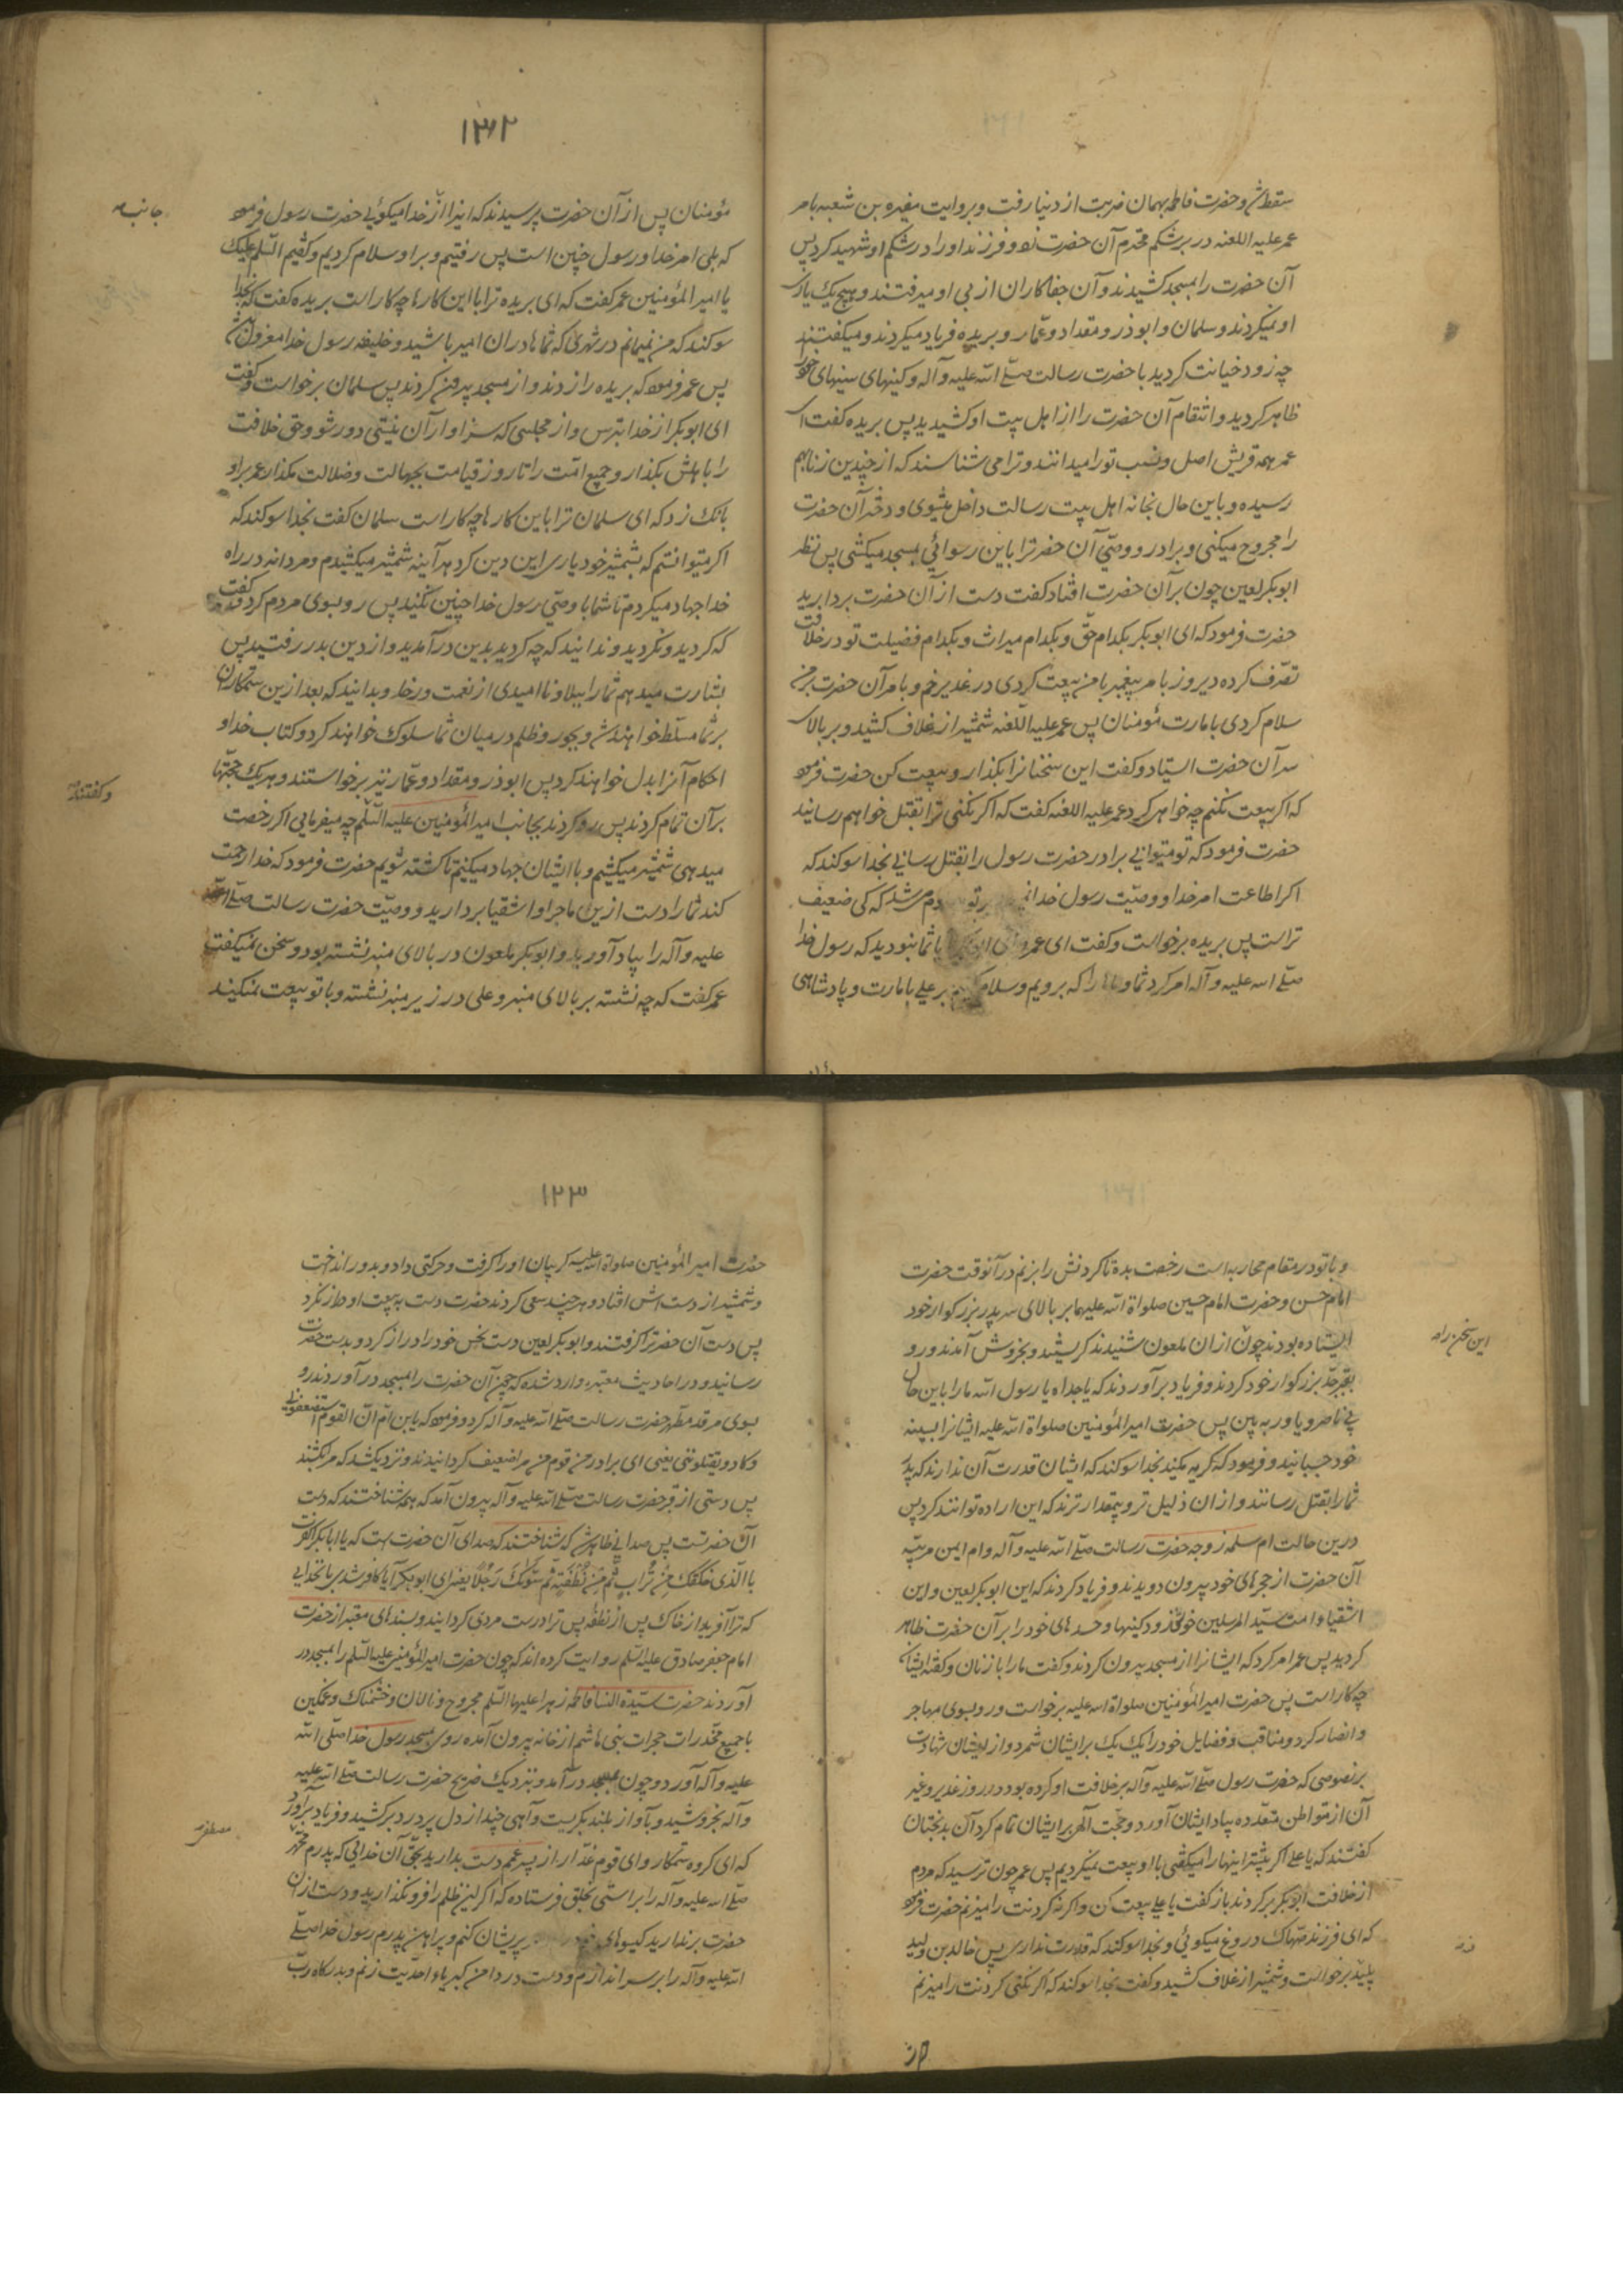 سقط شد و حضرت فاطمه بهمان ضربت از دنیا رفت و بروایت مغیره بن شعبه بامر
عمر علیه اللعنه در بر شکم محترم آن حضرت زد و فرزند او را در شکم او شهید کرد پس
آن حضرت را بمسجد کشیدند و آن جفا کاران از پی او میرفتند و هیچ یک یاری
او نمیکردند و سلمان و ابوذر و مقداد و عمار و بریده فریاد میکردند و میگفتند
چه زود خیانت کردید با حضرت رسالت صلی الله علیه و آله و کینهای سینهای خود
ظاهر کردید و انتقام آن حضرت را از اهل بیت او کشیدید پس بریده گفت ای
عمر همه قریش اصل و نسب تو را میدانند و ترا می شناسند که از چندین زنا بهم
رسیده و باین حال بخانه اهل بیت رسالت داخل میشوی و دختر آن حضرت
را مجروح میکنی و برادر و وصی آن حضرترا باین رسوائی بمسجد میکشی پس نظر
ابوبکر لعین چون بر آن حضرت افتاد گفت دست از آن حضرت بردارید
حضرت فرمود که ای ابوبکر بکدام حق و بکدام میراث و بکدام فضیلت تو در خلافت
تصرف کرده دیروز بامر پیغمبر با من بیعت کردی در غدیر خم و بامر آن حضرت بر من
سلام کردی بامارت مؤمنان پس عمر علیه اللعنه شمشیر از غلاف کشید و بر بالای
سر آن حضرت ایستاد و گفت این سخنانرا بگذار و بیعت کن حضرت فرمود
که اگر بیعت نکنم چه خواهی کرد عمر علیه اللعنه گفت که اگر نکنی ترا بقتل خواهم رسانید
حضرت فرمود که تو میتوانی برادر حضرت رسول را بقتل رسانی بخدا سوگند که
اگر اطاعت امر خدا و وصیت رسول خدا بر تو که کی ضعیف
تر است پس بریده برخواست و گفت ای عمر آیا شما نبودید که رسول خدا
صلی الله علیه و آله امر کرد شما و ما را که برویم و سلام کنیم بر علی بامارت و پادشاهی
۱۳۲
مؤمنان پس از آن حضرت پرسیدند که اینرا از خدا میگوئی حضرت رسول فرمود
که بلی امر خدا و رسول چنین است پس رفتیم و بر او سلام کردیم و گفتیم السلم علیک
یا امیر المؤمنین عمر گفت که ای بریده ترا با این کارها چه کار است بریده گفت که بخدا
سوگند که من نمیمانم در شهری که شما ها در ان امیر باشید و خلیفه رسول خدا معزول باشد
پس عمر فرمود که بریده را زدند و از مسجد بیرون کردند پس سلمان برخواست و گفت
ای ابوبکر از خدا بترس و از مجلسی که سزاوار آن نیستی دور شو و حق خلافت
را باهلش بگذار و جمیع امت را تا روز قیامت بجهالت و ضلالت مگذار عمر بر او
بانگ زد که ای سلمان ترا باین کارها چه کار است سلمان گفت بخدا سوگند که
اگر میتوانستم که بشمشیر خود یاری این دین کرد هر آینه شمشیر میکشیدم و مردانه در راه
خدا جهاد میکردم تا شما با وصی رسول خدا چنین نکنید پس رو بسوی مردم کرد و گفت
که کردید و نکردید و ندانید که چه کردید بدین در آمدید و از دین بدر رفتید پس
بشارت میدهم شما را ببلا و ناامیدی از نعمت و رخا و بدانید که بعد ازین ستمکاران
بر شما مسلط خواهند شد و بجور و ظلم در میان شما سلوک خواهند کرد و کتاب خدا و
احکام آنرا بدل خواهند کرد پس ابوذر و مقداد و عمار نیز برخواستند و هر یک حجتها
بر آن تمام کردند پس رو کردند بجانب امیر المؤمنین علیه السلم چه میفرمایی اگر رخصت
میدهی شمشیر میکشیم و با ایشان جهاد میکنیم تا کشته شویم حضرت فرمود که خدا رحمت
کند شما را دست ازین ماجرا و اشقیا بردارید و وصیت حضرت رسالت صلی الله
علیه و آله را بیاد آورید و ابوبکر ملعون در بالای منبر نشسته بود و سخن نمیگفت
عمر گفت که چه نشسته بر بالای منبر و علی در زیر منبر نشسته و با تو بیعت نمیکند
جانب
و گفتند
و با تو در مقام محاربه است رخصت بده تا گردنش را بزنم در آنوقت حضرت
امام حسن و حضرت امام حسین صلواة الله علیهما بر بالای سر پدر بزرگوار خود
ایستاده بودند چون از ان ملعون شنیدند گریستند و بخروش آمدند و رو
بقبر جد بزرگوار خود کردند و فریاد بر آوردند که یا جداه یا رسول الله ما را باین حال
بی ناصر و یاور به بین پس حضرت امیر المؤمنین صلواة الله علیه ایشانرا بسینه
خود چسبانید و فرمود که گریه مکنید بخدا سوگند که ایشان قدرت آن ندارند که پدر
شما را بقتل رسانند و از ان ذلیل تر و بیمقدار ترند که این اراده توانند کرد پس
درین حالت ام سلمه زوجه حضرت رسالت صلی الله علیه و آله و ام ایمن مربیه
آن حضرت از حجرهای خود بیرون دویدند و فریاد کردند که این ابوبکر لعین و این
اشقیا و امت سید المرسلین چه زود کینها و حسدهای خود را بر آن حضرت ظاهر
کردید پس عمر امر کرد که ایشانرا از مسجد بیرون کردند و گفت ما را با زنان و گفته ایشان
چه کار است پس حضرت امیر المؤمنین صلواة الله علیه برخواست و رو بسوی مهاجر
و انصار کرد و مناقب و فضایل خود را یک یک بر ایشان شمرد و از ایشان شهادت
بر نصوصی که حضرت رسول صلی الله علیه و آله بر خلافت او کرده بود در روز غدیر و غیر
آن از مواطن متعدده بیاد ایشان آورد و حجت الهی بر ایشان تمام کرد آن بدبختان
گفتند که یا علی اگر پیشتر اینها را میگفتی با او بیعت نمیکردیم پس عمر چون ترسید که مردم
از خلافت ابوبکر برگردند باز گفت یا علی بیعت کن و اگر نه گردنت را میزنم حضرت فرمود
که ای فرزند صهاک دروغ میگوئی و بخدا سوگند که قدرت نداری پس خالد بن ولید
پلید برخواست و شمشیر از غلاف کشید و گفت بخدا سوگند که اگر نکنی گردنت را میزنم
این سخن را
۱۲۳
حضرت امیر المؤمنین صلواة الله علیه گریبان او را گرفت و حرکتی داد و بدور انداخت
و شمشیر از دست اش افتاد و هر چند سعی کردند حضرت دست به بیعت او دراز نکرد
پس دست آن حضرترا گرفتند و ابوبکر لعین دست نحس خود را دراز کرد و بدست حضرت
رسانید و در احادیث معتبره وارد شده که چون آن حضرت را بمسجد در آوردند رو
بسوی مرقد مطهر حضرت رسالت صلی الله علیه و آله کرد و فرمود که یا بن ام ان القوم استضعفونی
و کادو یقتلوننی یعنی ای برادر من قوم من مرا ضعیف گردانیدند و نزدیک شد که مرا بکشند
پس دستی از قبر حضرت رسالت صلی الله علیه و آله بیرون آمد که همه شناختند که دست
آن حضرتست پس صدایی ظاهر شد که شناختند که صدای آن حضرتست که یا ابابکر اکفرت
باالذی خلقک من تراب ثم من نطفة ثم سواک رجلا یعنی ای ابوبکر آیا کافر شدی با خدایی
که ترا آفرید از خاک پس از نطفه پس ترا درست مردی گردانید و بسندهای معتبر از حضرت
امام جعفر صادق علیه السلم روایت کرده اند که چون حضرت امیر المؤمنین علیه السلم را بمسجد در
آوردند حضرت سیدة النسا فاطمه زهرا علیها السلم مجروح و نالان و خشمناک و غمگین
با جمیع مخدرات حجرات بنی هاشم از خانه بیرون آمده روی بمسجد رسول خدا صلی الله
علیه و آله آورد و چون بمسجد در آمد و بنزدیک ضریح حضرت رسالت صلی الله علیه
و آله بخروشید و بآواز بلند بگریست و آهی چند از دل پر درد بر کشید و فریاد بر آورد
که ای گروه ستمکار و ای قوم غدار از پسر عمم دست بدارید بحق آن خدائی که پدرم محمد
صلی الله علیه و آله را براستی بخلق فرستاده که اگر این ظلم را فرو نگذارید و دست از ان
حضرت برندارید گیسوهای خود پریشان کنم و پیراهن پدرم رسول خدا صلی
الله علیه و آله را بر سر اندازم و دست در دامن کبریا و احدیت زنم و بدرگاه رب
مصطفی